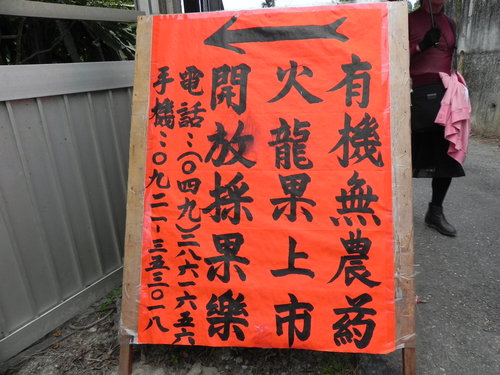 有機無農葯
火龍果上市
開放採果樂
電話:(〇四九)二八六一六五六
手機:〇九二一-三五三〇一八